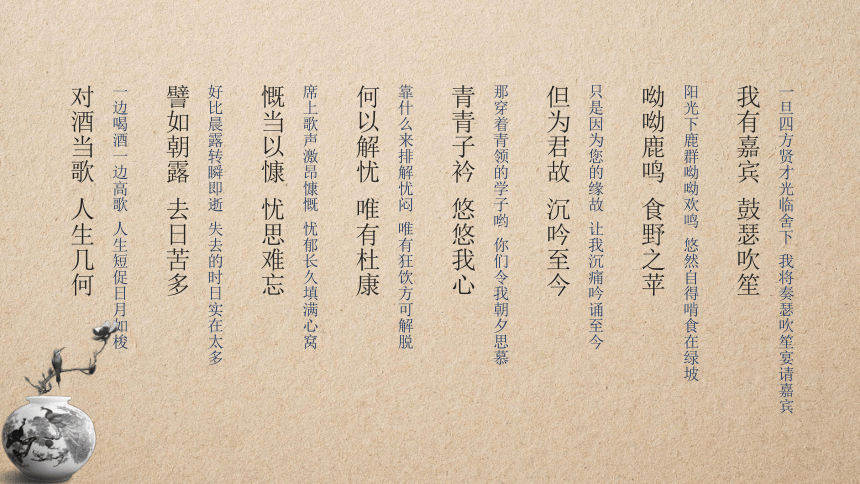 对酒当歌 人生几何
一边喝酒一边高歌 人生短促日月如梭
譬如朝露 去日苦多
好比晨露转瞬即逝 失去的时日实在太多
慨当以慷 忧思难忘
席上歌声激昂慷慨 忧郁长久填满心窝
何以解忧 唯有杜康
靠什么来排解忧闷 唯有狂饮方可解脱
青青子衿 悠悠我心
那穿着青领的学子哟 你们令我朝夕思慕
但为君故 沉吟至今
只是因为您的缘故 让我沉痛吟诵至今
呦呦鹿鸣 食野之苹
阳光下鹿群呦呦欢鸣 悠然自得啃食在绿坡
我有嘉宾 鼓瑟吹笙
一旦四方贤才光临舍下 我将奏瑟吹笙宴请嘉宾